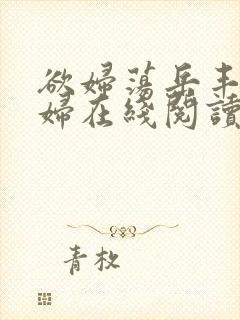 欲婦蕩岳丰
婦在綫閱讀
青枚